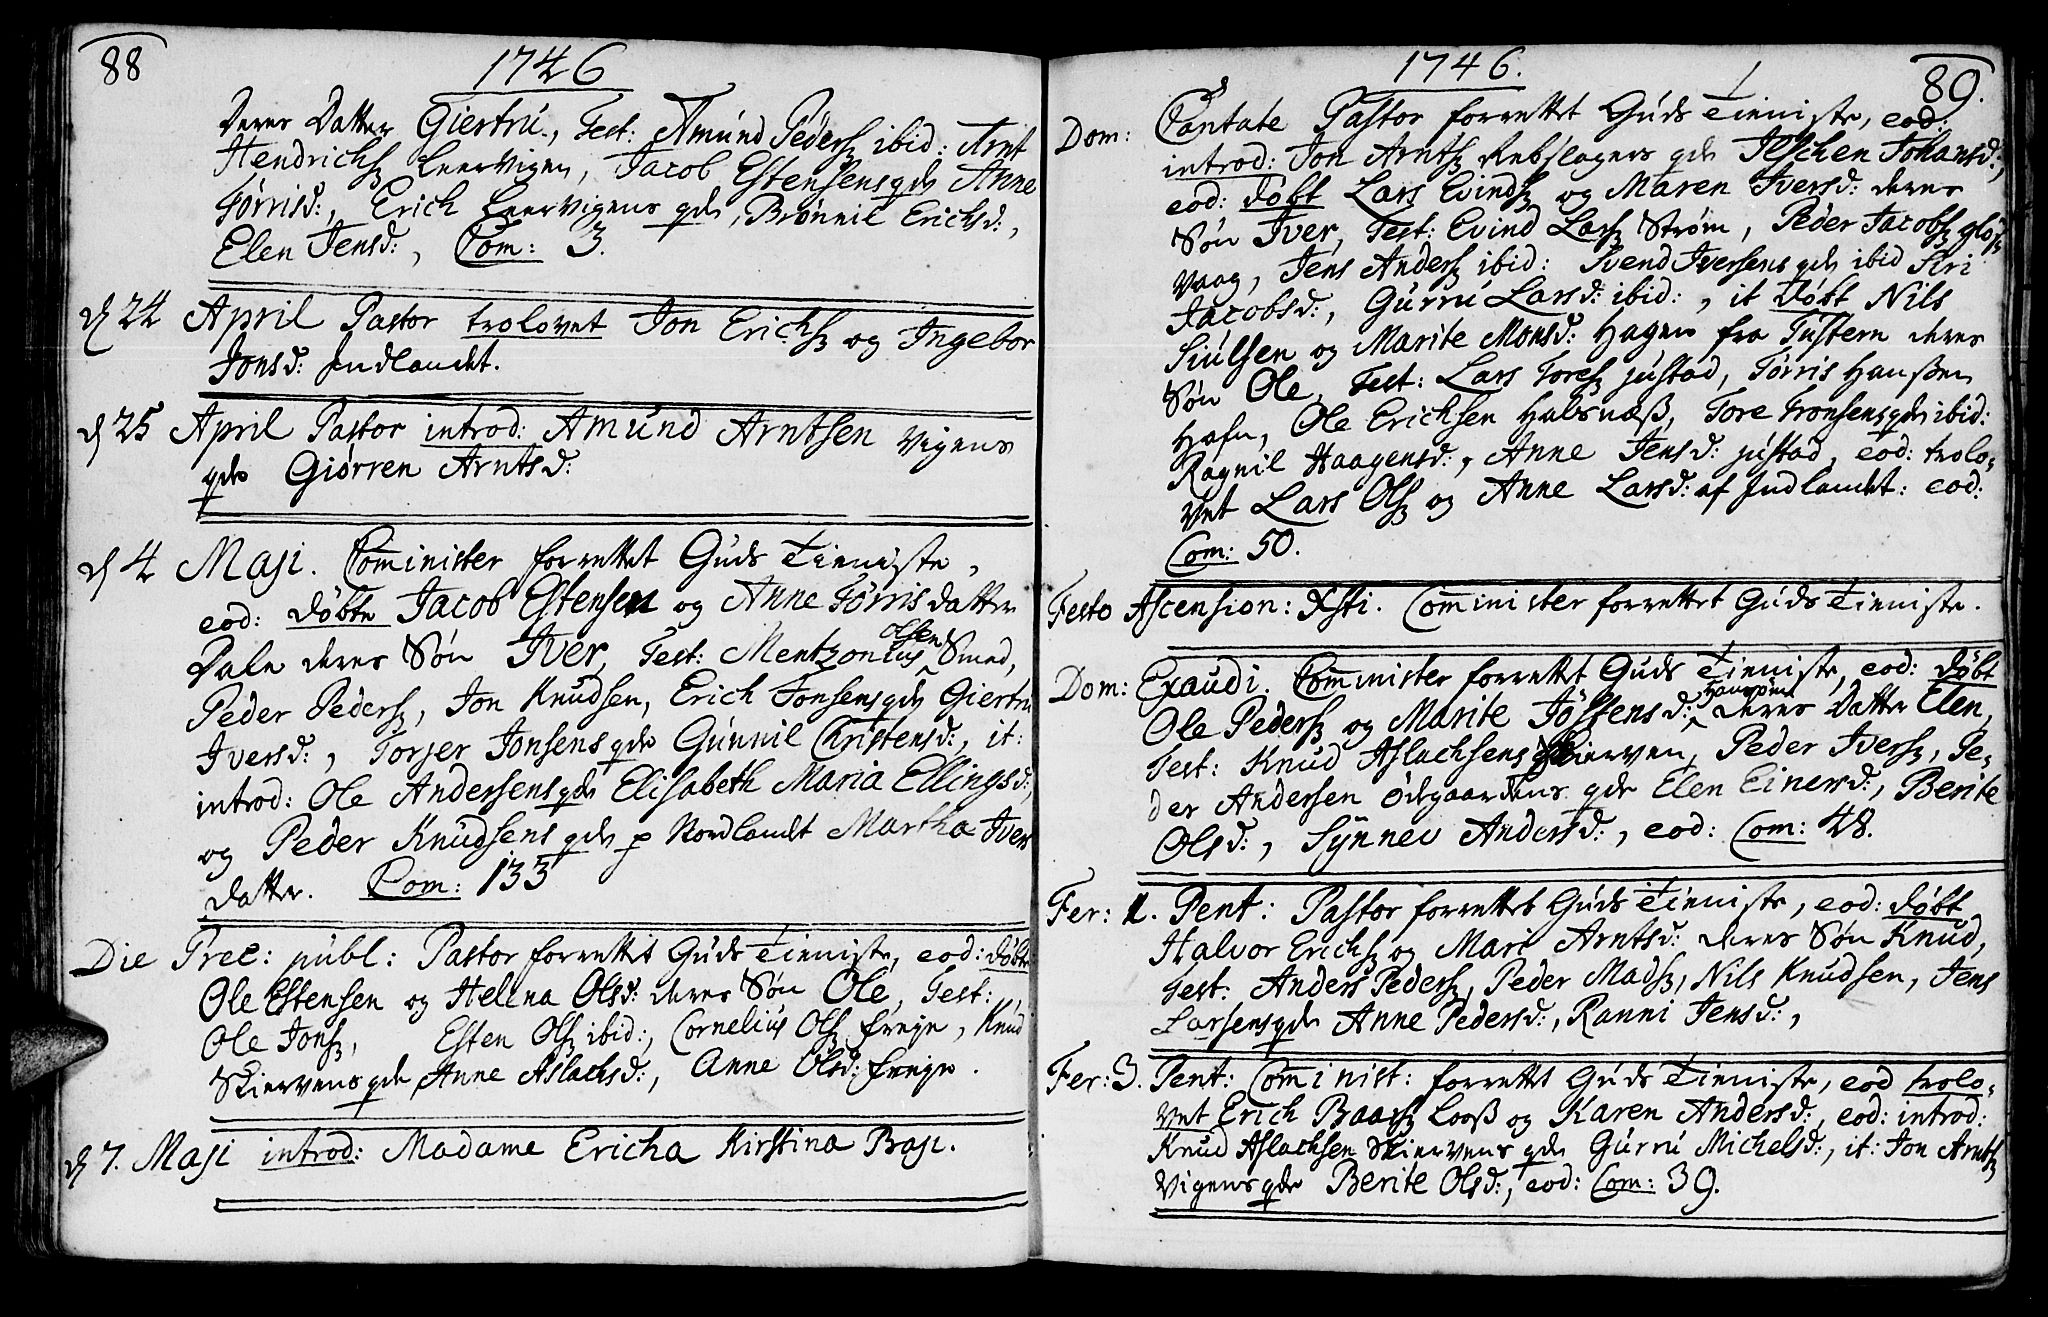 88
1746
Deres Datter Giertrú., Test: Amund Pederß ibid: Arnt
Hendrichß Leervigen, Jacob Estensens qde Anne
Tørrisd:, Erich Leervigens qde, Brønnil Erichsd:,
Elen Jensd:, Com: 3.
d 24 April Pastor trolovet Jon Erichß og Ingebor
Jonsd: Indlandet.
d 25 April Pastor introd: Amund Arntsen Vigens
qde Giørren Arntsd:
d 4 Maji. Com̄inister forrettet Guds Tieniste,
eod: døbte Jacob Estensen og Anne Tørris datter
Dale deres Søn Iver, Test: Mentzonius Olsen Smed,
Peder Pederß, Jon Knudsen, Erich Jonsens qde Giertru
Iversd:, Torjer Jonsens qde Gunnil Christensd:, it:
introd: Ole Andersens qde Elisabeth Maria Ellingsd:,
og Peder Knudsens qde p Nordlandet Martha Ivers
datter. Com: 133
Die Prec: publ: Pastor forrettet Guds Tieniste, eod: døbte
Ole Estensen og Helena Olsd: deres Søn Ole, Test:
Ole Jonß, Esten Olß ibid:, Cornelius Olß Freye, Knud
Skiervens qde Anne Aslachsd:, Anne Olsd: Freye.
d 7. Maji introd: Madame Ericha Kirstina Baje.
1746.
89.
Dom: Cantate Pastor forrettet Guds Tieniste, eod:
introd: Jon Arntß Rebslagers qde Ilschen Johansd:,
eod: døbt Lars Evindß og Maren Iversd: deres
Søn Iver, Test: Evind Larß Strøm, Peder Jacobß glos
Vaag, Jens Anderß ibid: Svend Iversens qde ibid Siri
Jacobsd:, Gurru Larsd: ibid:, it døbt Nils
Siulsen og Marite Monsd: Hagen fra Tustern deres
Søn Ole, Test: Lars Toreß justad, Tørris Hanßen
Hafn, Ole Erichsen Halsnæß, Tore Tronsens qde ibid:
Ragnil Haagensd:, Anne Jensd: justad, eod: trolo-
vet Lars Olß og Anne Larsd: af Indlandet: eod:
Com: 50.
Festo Ascension: Xsti. Com̄inister forrettet Guds Tieniste.
Dom: Exaudi. Com̄inister forrettet Guds Tieniste, eod: døbt
Ole Pederß og Marite Jøssensd: deres Datter Elen,
Test: Knud Aslachsens Skierven, Peder Iverß, Pe-
der Andersen Ødegaardens qde Elen Einersd:, Berite
Olsd:, Synnev Andersd:, eod: Com: 48.
Fer: 1. Pent: Pastor forrettet Guds Tieniste, eod: døbt
Halvor Erichß og Mari Arntsd: deres Søn Knud,
Test: Anders Pederß, Peder Madß, Nils Knudsen, Jens
Larsens qde Anne Pedersd:, Ranni Jensd:,
Fer: 3. Pent: Com̄inist: forrettet Guds Tieniste, eod trolo-
vet Erich Baarß Looß og Karen Andersd:, eod: introd:
Knud Aslachsen Skiervens qde Gurru Michelsd:, it: Jon Arntß
Vigens qde Berite Olsd:, eod: Com: 39.